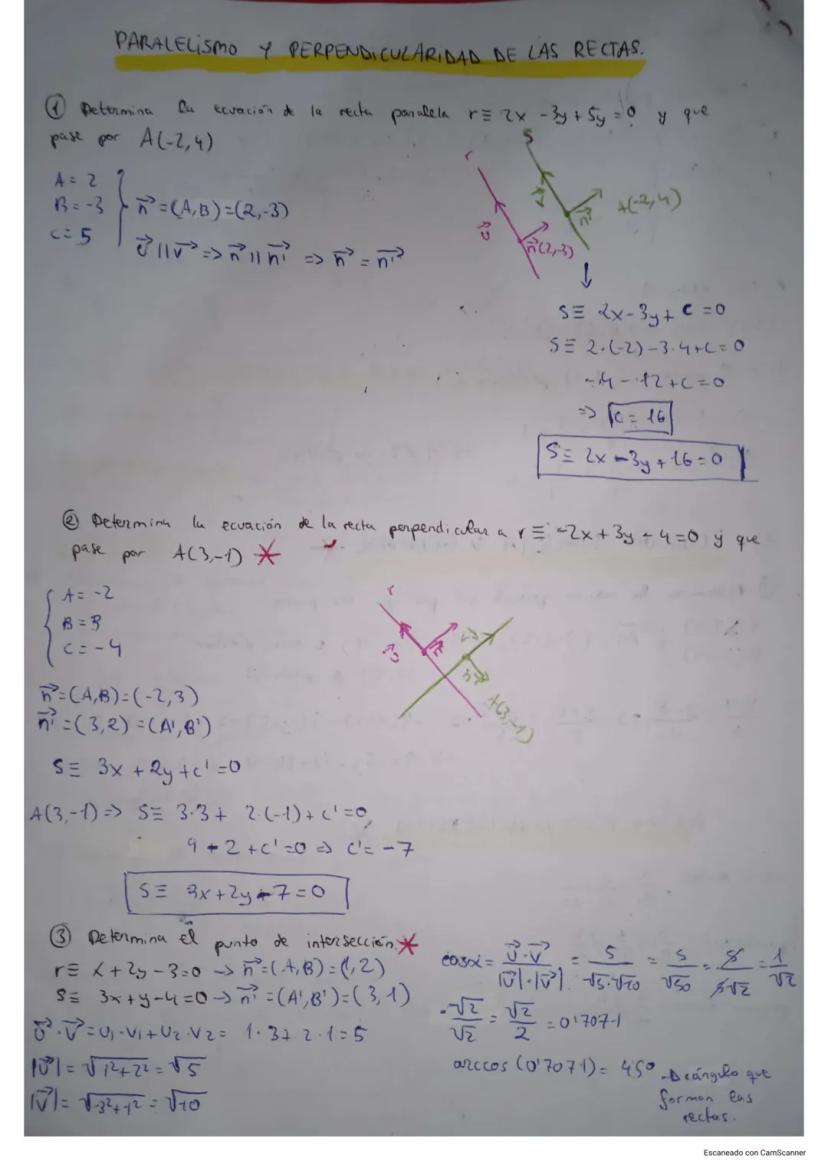 PARALELISMO Y PERPENDICULARIDAD DE LAS RECTAS.
① Determina la ecuación de la recta paralela r≡ 2x -3y + 5y = 0 y que
pase por A(-2,4)
A = 2
B = -3
C = 5
n⃗ = (A,B) = (2,-3)
U⃗ || V⃗ => n⃗ || n⃗' => n⃗ = n⃗'
r
S
v⃗
n⃗'
A(-2,4)
U⃗
n⃗(2,-3)
S≡ 2x - 3y + C = 0
S≡ 2·(-2) - 3·4 + C = 0
-4 - 12 + C = 0
=> C = 16
S≡ 2x - 3y + 16 = 0
② Determina la ecuación de la recta perpendicular a r≡ -2x + 3y - 4 = 0 y que
pase por A(3,-1) *
A = -2
B = 3
C = -4
r
A(3,-1)
n⃗ = (A,B) = (-2,3)
n⃗' = (3,2) = (A',B')
S≡ 3x + 2y + c' = 0
A(3,-1) => S≡ 3·3 + 2·(-1) + c' = 0
9 - 2 + c' = 0 => c' = -7
S≡ 3x + 2y - 7 = 0
③ Determina el punto de intersección. *
r≡ x + 2y - 3 = 0 → n⃗ = (A,B) = (1,2)
S≡ 3x + y - 4 = 0 → n⃗' = (A',B') = (3,1)
U⃗ · V⃗ = U₁·V₁ + U₂·V₂ = 1·3 + 2·1 = 5
|U⃗| = √1²+2² = √5
|V⃗| = √3²+1² = √10
cosα = U⃗·V⃗ / |U⃗|·|V⃗| = 5/√5·√10 = 5/√50 = 5/5√2 = 1/√2
·√2/√2 = √2/2 = 0'7071
arccos (0'7071) = 45º → ángulo que
forman las
rectas.
Escaneado con CamScanner